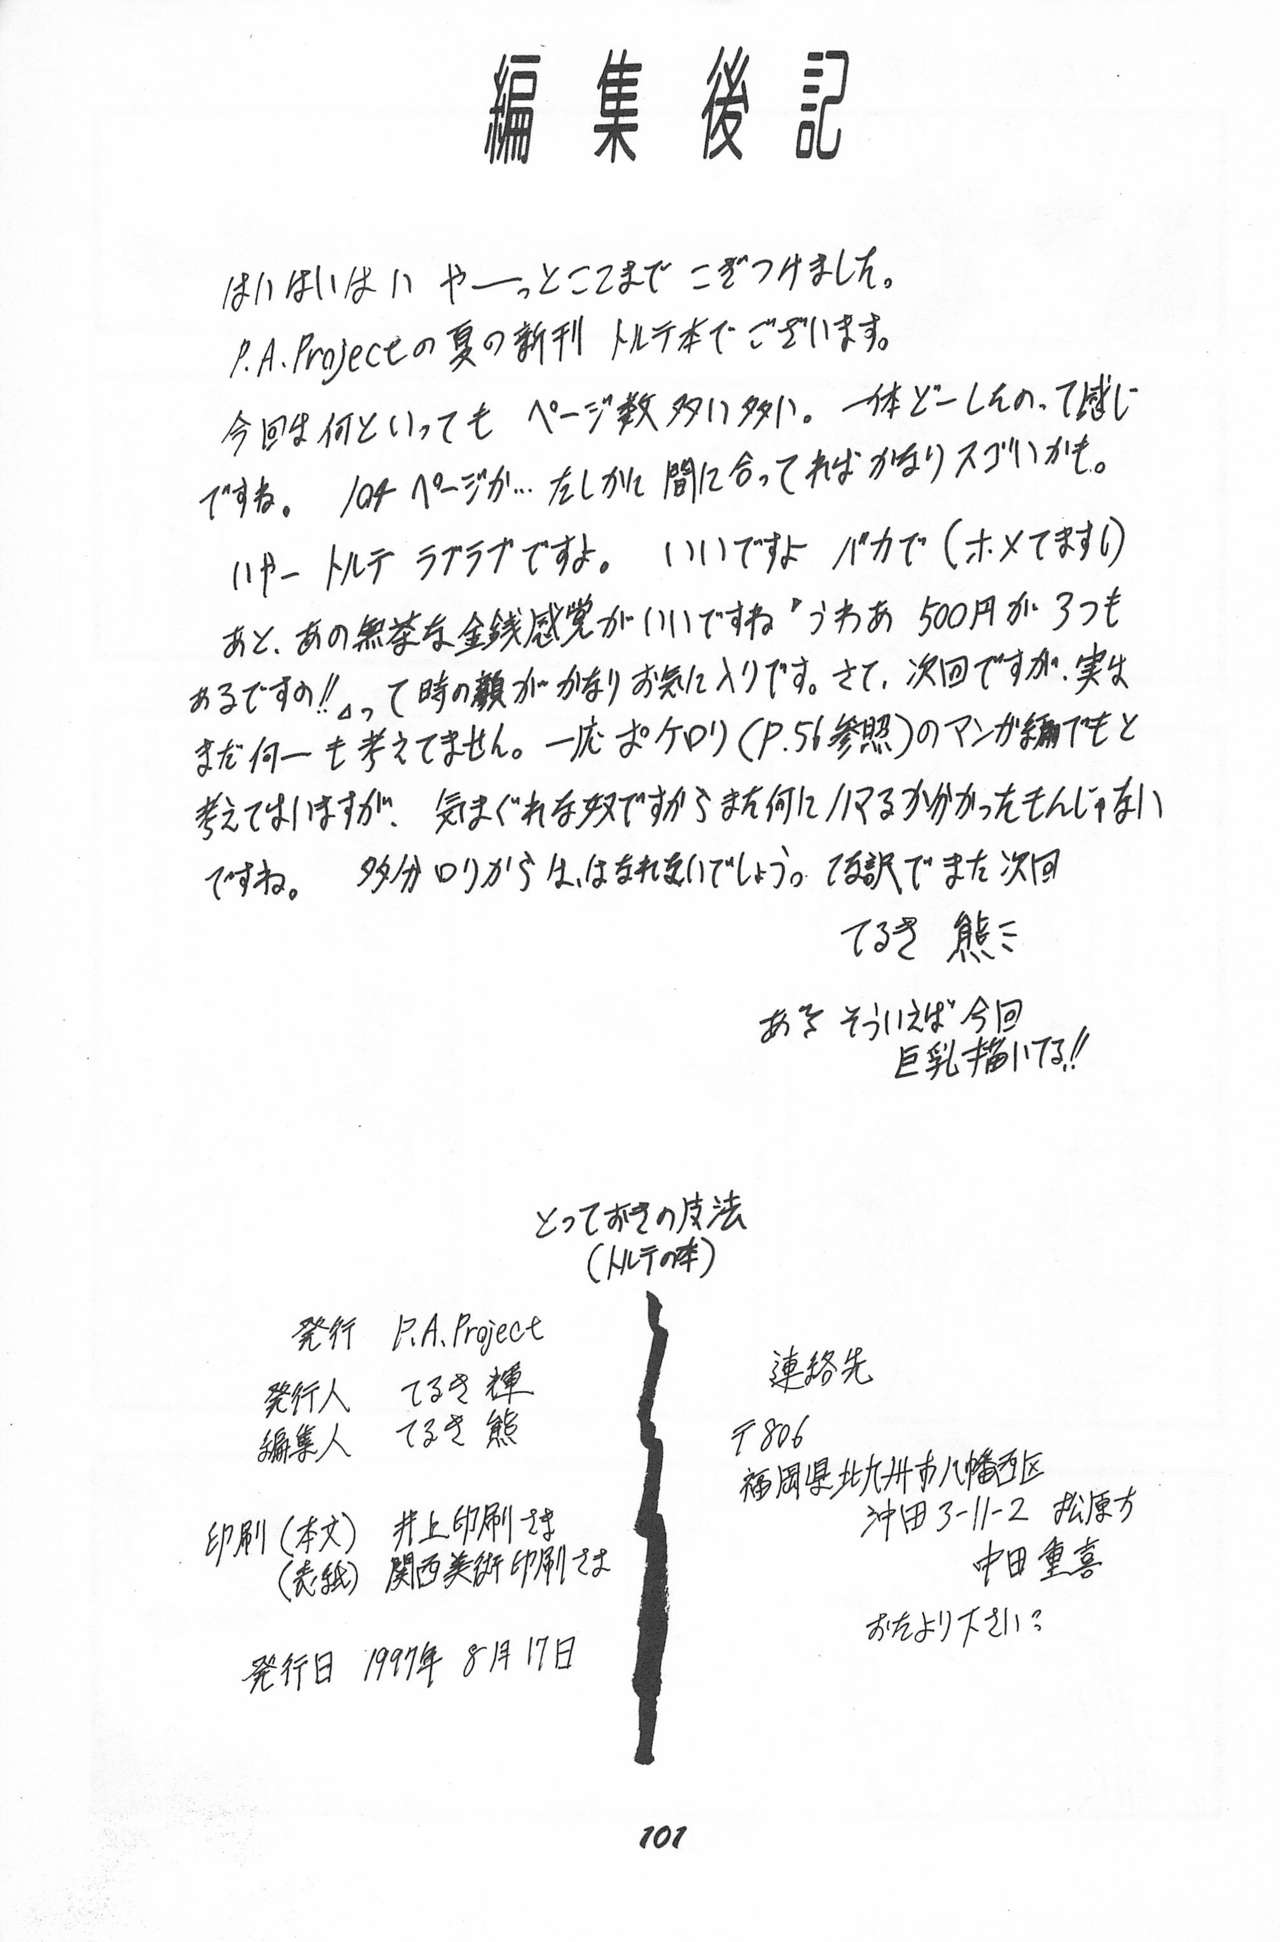 編集後記
はいはいはい やーっとここまで こぎつけました。
P.A.Projectの夏の新刊 トルテ本でございます。
今回は何といっても ページ数 多い多い。 一体どーしたのって感じ
ですね。 104ページか… たしかに 間に合ってればかなりスゴいかも。
いやー トルテ ラブラブですよ。 いいですよ バカで (ホメてます!)
あと、あの無茶な金銭感覚がいいですね「うわあ 500円が3つも
あるですの!!」って時の顔がかなりお気に入りです。さて、次回ですが、実は
まだ何ーも考えてません。一応ポケロリ(P.56参照)のマンガ編でもと
考えてはいますが、 気まぐれな奴ですからまた何にハマるか分かったもんじゃない
ですね。 多分ロリからは、はなれないでしょう。 てな訳でまた次回
てるき 熊ミ
あそういえば 今回
巨乳描いてる!!
とっておきの皮法
(トルテの本)
発行 P.A.Project
発行人 てるき 輝
編集人 てるき 熊
印刷(本文) 井上印刷さま
(表紙) 関西美術印刷さま
発行日 1997年 8月17日
連絡先
〒806
福岡県北九州市八幡西区
沖田3-11-2 松原方
中田 重喜
おたより下さい
101